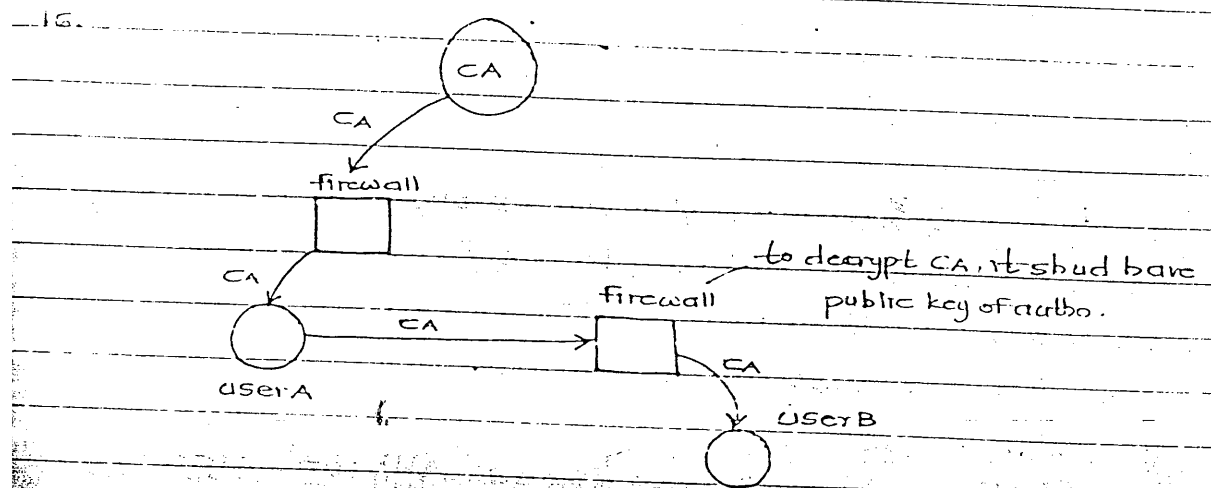 15.
CA
CA
firewall
CA
to decrypt CA, it shud have
public key of autho.
firewall
CA
CA
userA
userB